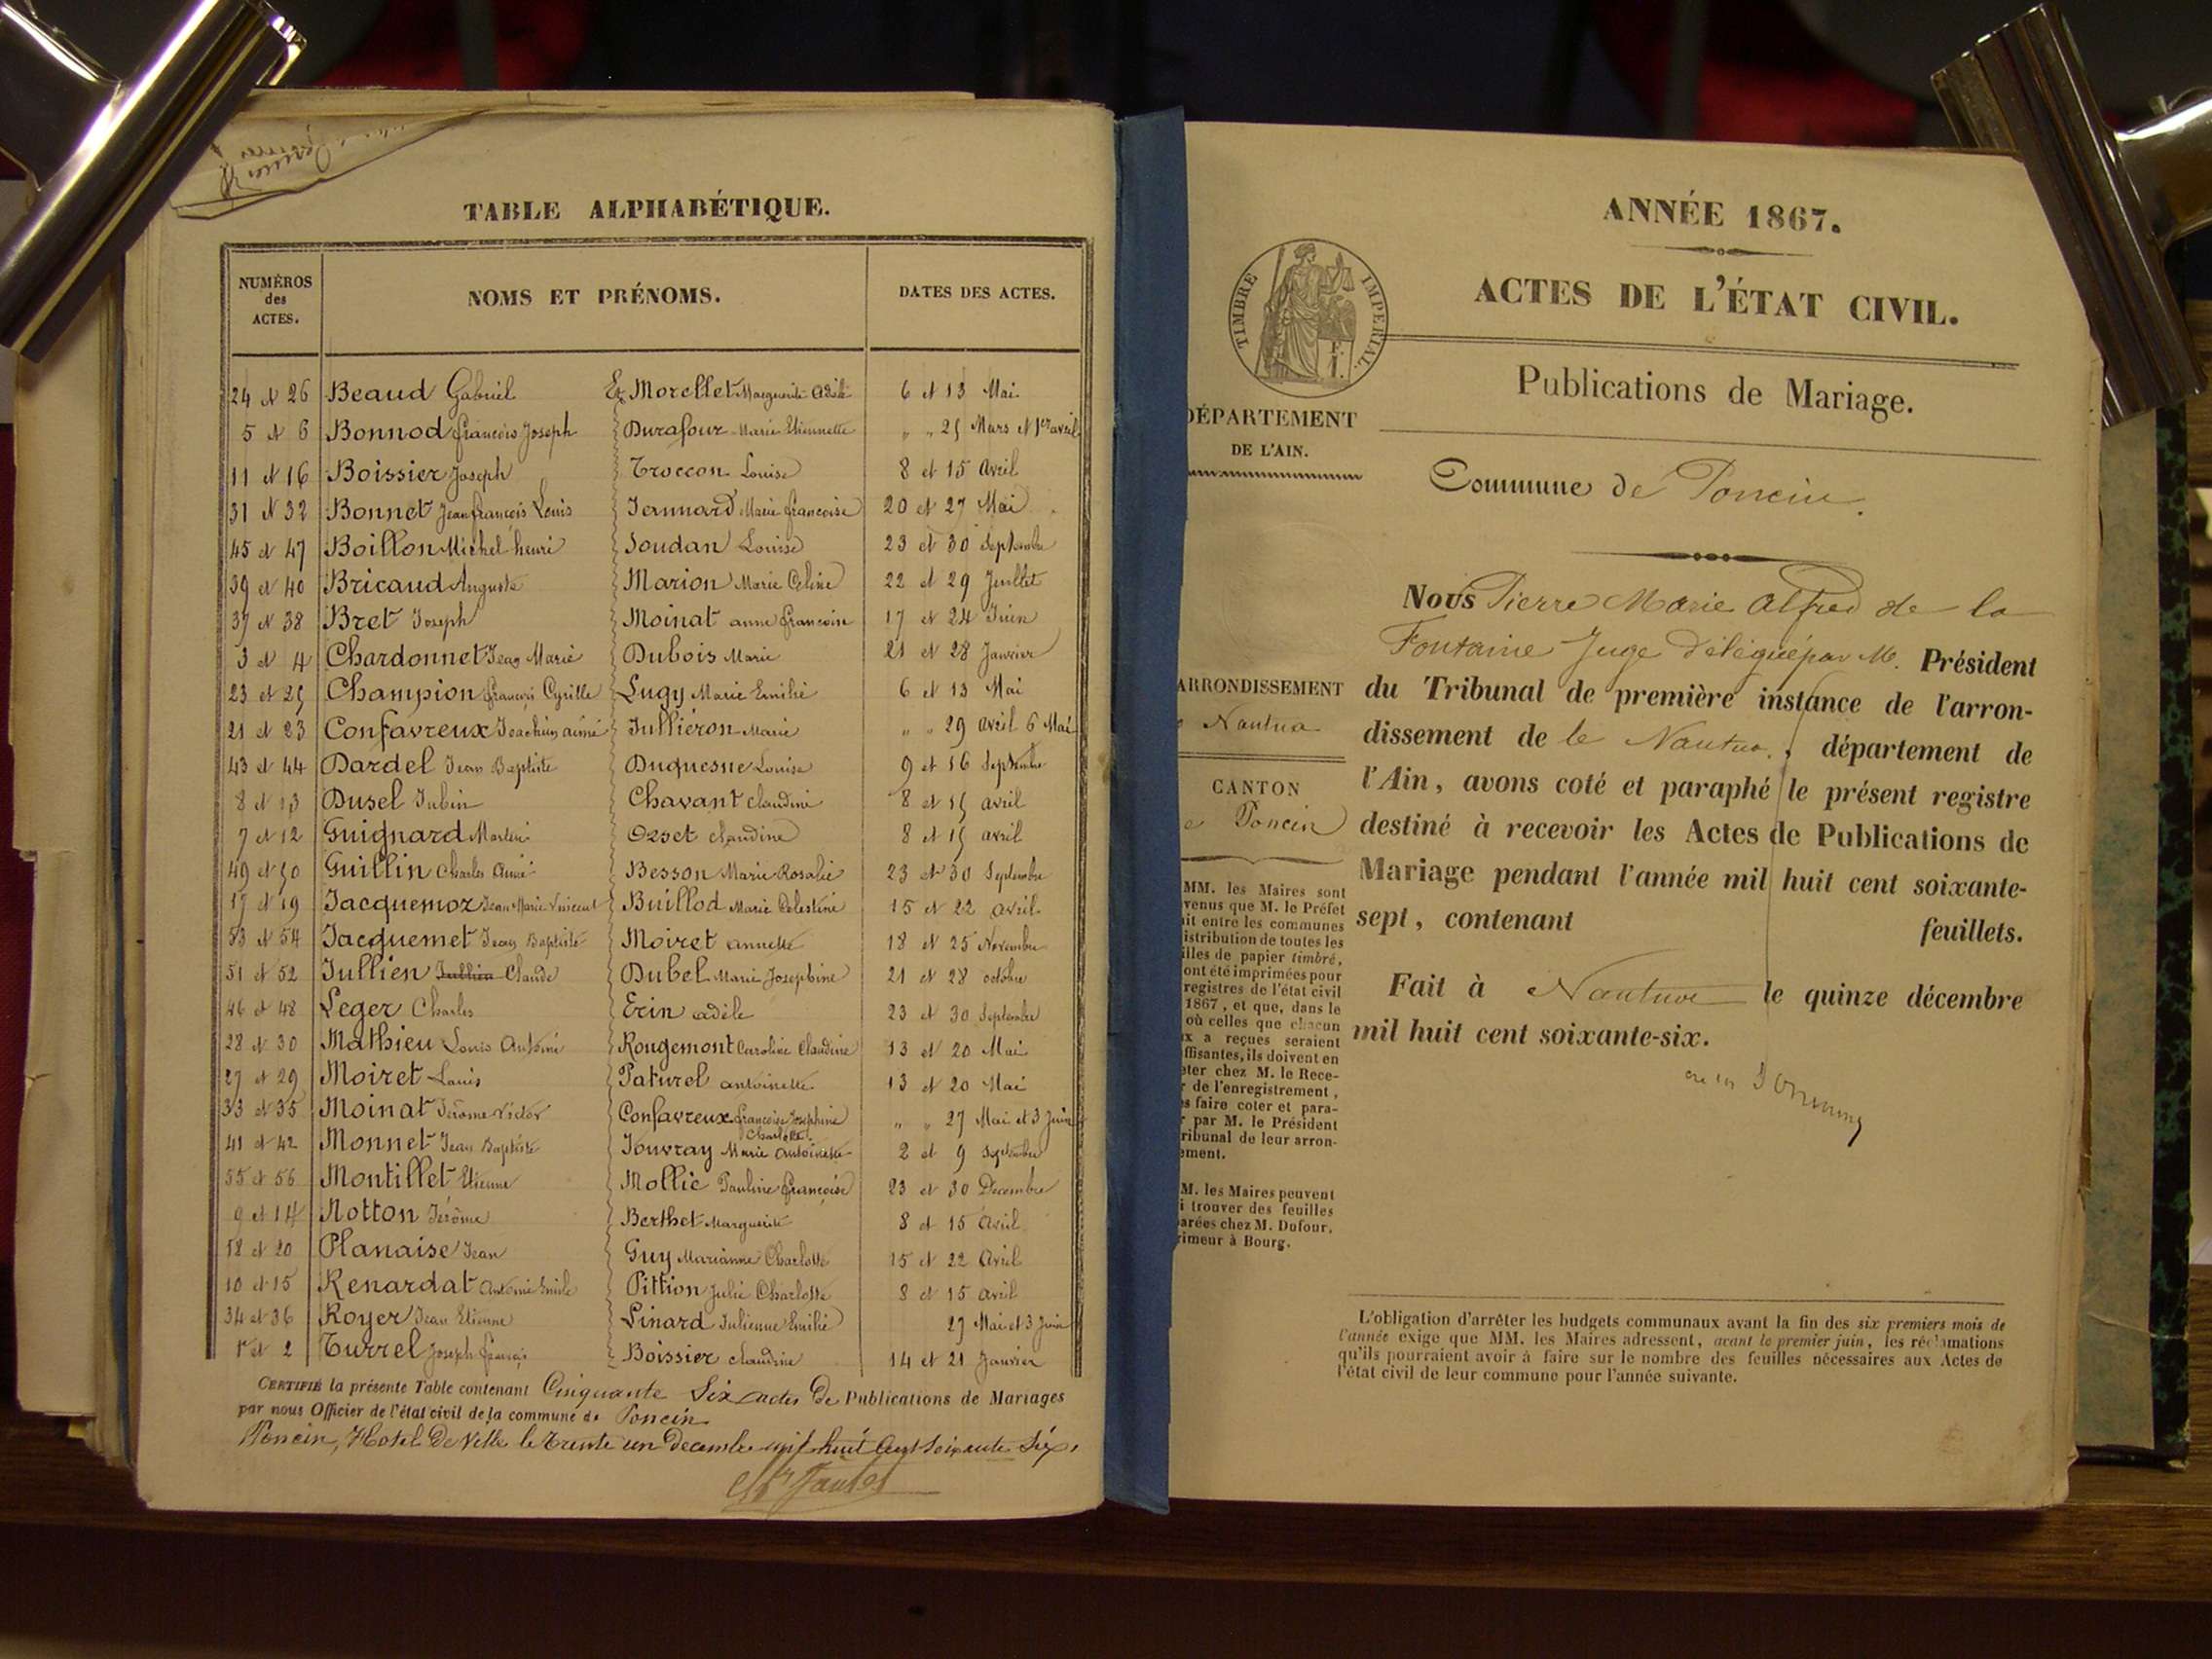 TABLE ALPHABÉTIQUE.
NUMÉROS des ACTES. NOMS ET PRÉNOMS. DATES DES ACTES.
24 et 26 Beaud Gabriel Et Morellet Marguerite Adèle 6 et 13 Mai
5 et 6 Bonnod françois Joseph Durafour Marie Etiennette " " 25 Mars et 1er avril
11 et 16 Boissier Joseph Troccon Louise 8 et 15 Avril
31 et 32 Bonnet Jean françois Louis Jeannard Marie françoise 20 et 27 Mai
45 et 47 Boillon Michel henri Soudan Louise 23 et 30 Septembre
39 et 40 Bricaud Auguste Marion Marie Celine 22 et 29 Juillet
37 et 38 Bret Joseph Moinat anne françoise 17 et 24 Juin
3 et 4 Chardonnet Jean Marie Dubois Marie 21 et 28 Janvier
23 et 25 Champion françois Cyrille Lugy Marie Emilie 6 et 13 Mai
21 et 23 Confavreux Joachim aimé Jullieron Marie " " 29 avril 6 Mai
43 et 44 Dardel Jean Baptiste Duquesne Louise 9 et 16 Septembre
8 et 13 Dusel Jubin Chavant claudine 8 et 15 avril
7 et 12 Guignard Martin Orset claudine 8 et 15 avril
49 et 50 Guillin Charles Aimé Besson Marie Rosalie 23 et 30 Septembre
17 et 19 Jacquemoz Jean Marie Vincent Buillod Marie Celestine 15 et 22 avril
53 et 54 Jacquemet Jean Baptiste Moiret annette 18 et 25 Novembre
51 et 52 Jullien Jullien Claude Dubel Marie Josephine 21 et 28 octobre
46 et 48 Leger Charles Erin adèle 23 et 30 Septembre
28 et 30 Mathieu Louis Antoine Rougemont Caroline Claudine 13 et 20 Mai
27 et 29 Moiret Louis Paturel antoinette 13 et 20 Mai
33 et 35 Moinat Jérôme Victor Confavreux françoise Josephine " " 27 Mai et 3 Juin
Charlotte
41 et 42 Monnet Jean Baptiste Jouvray Marie Antoinette 2 et 9 Septembre
55 et 56 Montillet Etienne Mollie Pauline françoise 23 et 30 Decembre
9 et 14 Notton Jérôme Berthet Marguerite 8 et 15 Avril
18 et 20 Planaise Jean Guy Marianne Charlotte 15 et 22 Avril
10 et 15 Renardat Antoine Emile Pittion Julie Charlotte 8 et 15 avril
34 et 36 Royer Jean Etienne Linard Julienne Emilie 27 Mai et 3 Juin
1er et 2 Turrel Joseph françois Boissier claudine 14 et 21 Janvier
CERTIFIÉ la présente Table contenant Cinquante Six actes de Publications de Mariages
par nous Officier de l'état civil de la commune de Poncin
Poncin, Hotel De Ville le trente un Decembre mil huit cent soixante Six.
ANNÉE 1867.
ACTES DE L'ÉTAT CIVIL.
TIMBRE IMPERIAL.
Publications de Mariage.
DÉPARTEMENT
DE L'AIN.
Commune de Poncin.
ARRONDISSEMENT
Nantua
CANTON
Poncin
Nous Pierre Marie Alfred de la
Fontaine Juge délégué par M. Président
du Tribunal de première instance de l'arron-
dissement de le Nantua, département de
l'Ain, avons coté et paraphé le présent registre
destiné à recevoir les Actes de Publications de
Mariage pendant l'année mil huit cent soixante-
sept, contenant feuillets.
Fait à Nantua le quinze décembre
mil huit cent soixante-six.
MM. les Maires sont
venus que M. le Préfet
it entre les communes
istribution de toutes les
illes de papier timbré,
ont été imprimées pour
registres de l'état civil
1867, et que, dans le
où celles que chacun
x a reçues seraient
ffisantes, ils doivent en
eter chez M. le Rece-
r de l'enregistrement,
s faire coter et para-
r par M. le Président
ribunal de leur arron-
ement.
M. les Maires peuvent
i trouver des feuilles
arées chez M. Dufour,
rimeur à Bourg.
L'obligation d'arrêter les budgets communaux avant la fin des six premiers mois de
l'année exige que MM. les Maires adressent, avant le premier juin, les réclamations
qu'ils pourraient avoir à faire sur le nombre des feuilles nécessaires aux Actes de
l'état civil de leur commune pour l'année suivante.